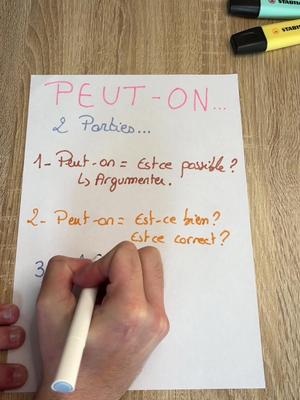 PEUT-ON...
2 Parties...
1- Peut-on = Est ce possible?
↳ Argumenter.
2- Peut-on = Est-ce bien?
Est ce correct?
3
STABILO
STABILO